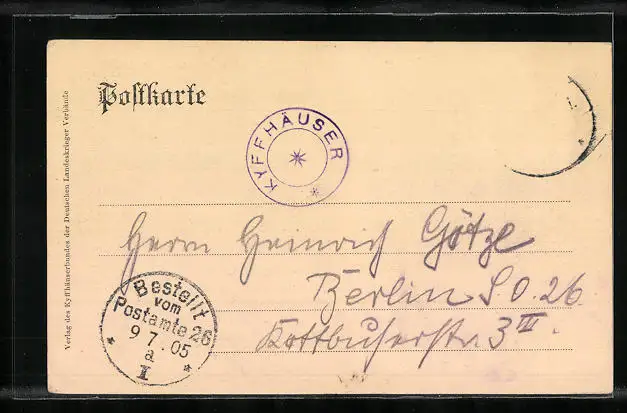 Postkarte
KYFFHÄUSER
Verlag des Kyffhäuserbundes der Deutschen Landeskrieger Verbände
Herrn Heinrich Götze
Berlin S.O. 26.
Kottbuserstr. 3 III.
Bestellt
vom
Postamte 26
9 7. 05
a
I